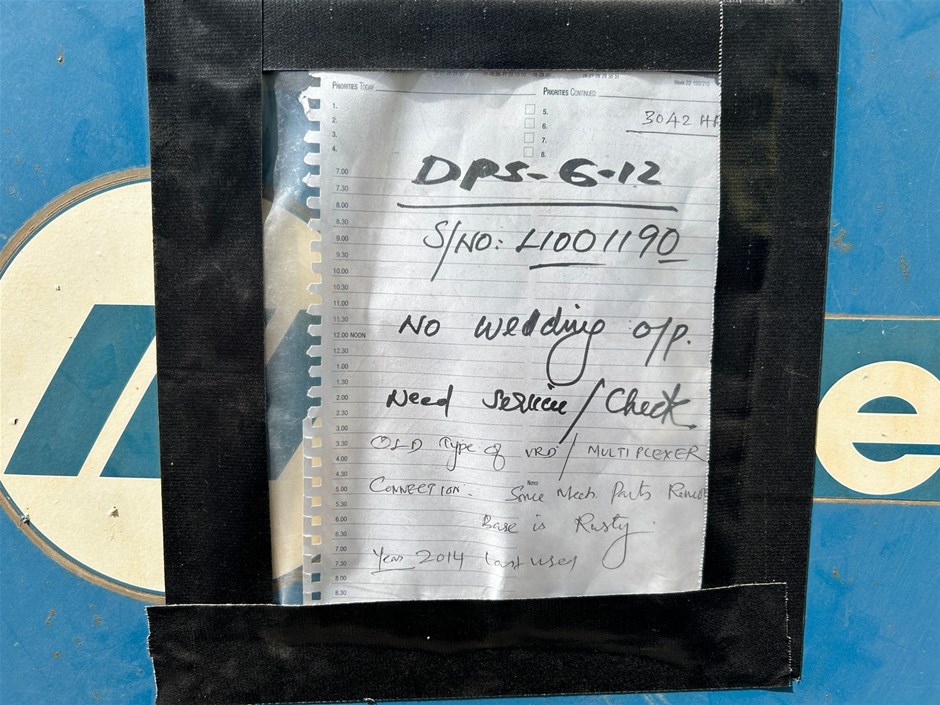 PRIORITIES TODAY
PRIORITIES CONTINUED
1.
2.
3.
4.
5.
6.
7.
8.
3042 HR
DPS-G-12
S/NO: L1001190
NO wedding o/p.
Need service/Check
OLD Type of VRD/MULTIPLEXER
CONNECTION:
Notes
Some Mech Parts
Base is Rusty.
Year 2014 last used
7.00
7.30
8.00
8.30
9.00
9.30
10.00
10.30
11.00
11.30
12.00 NOON
12.30
1.00
1.30
2.00
2.30
3.00
3.30
4.00
4.30
5.00
5.30
6.00
6.30
7.00
7.30
8.00
8.30
e